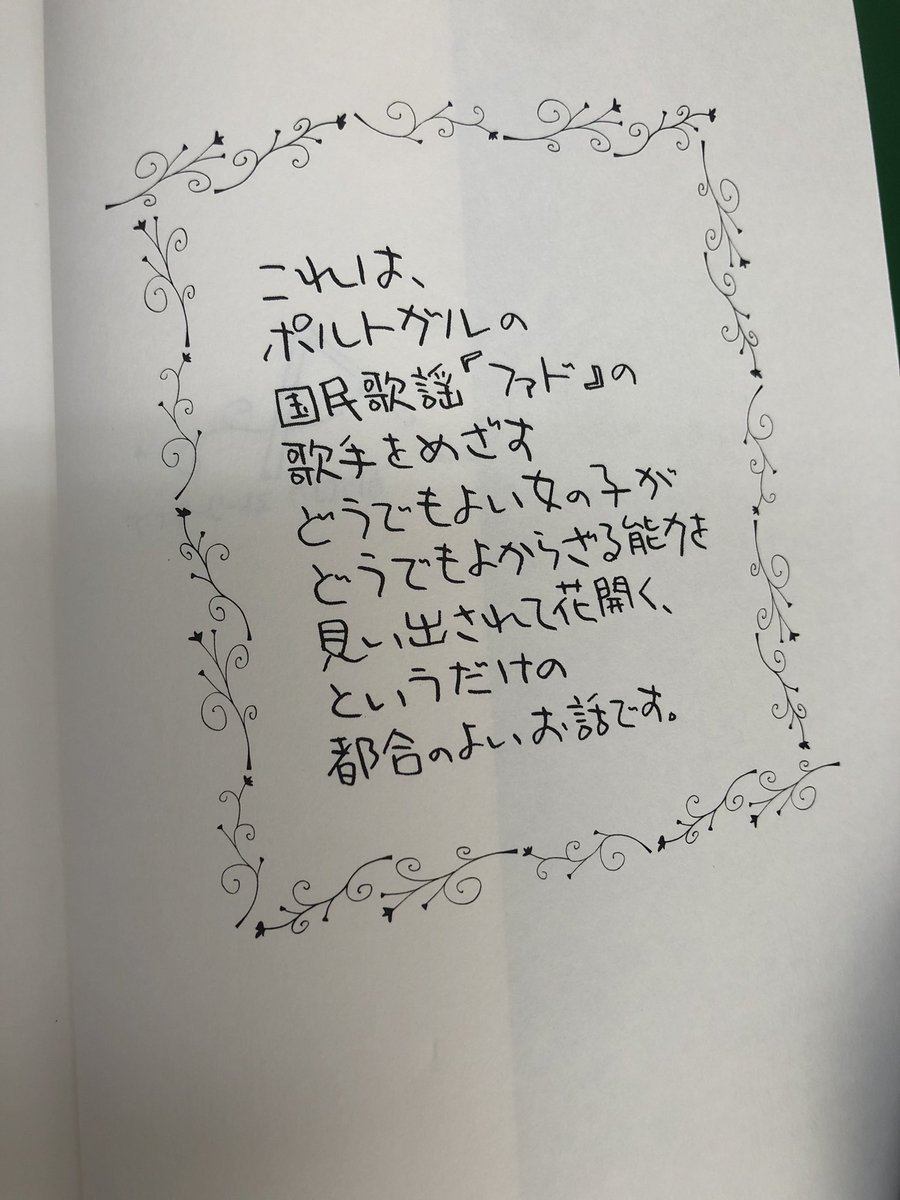 これは、
ポルトガルの
国民歌謡『ファド』の
歌手をめざす
どうでもよい女の子が
どうでもよからざる能力を
見い出されて花開く、
というだけの
都合のよいお話です。